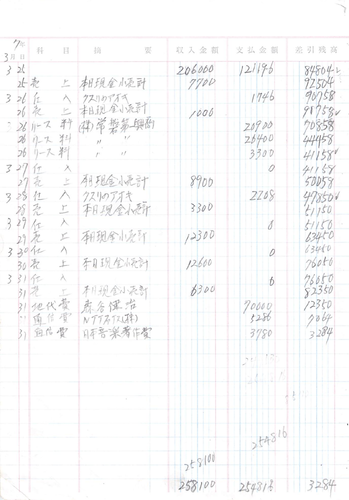 科目 摘要 収入金額 支払金額 差引残高
3 25 206000 84804
25 売上 本日現金小売計 7700 92504
3 26 仕入 クスリのアオキ 1746 90758
26 売上 本日現金小売計 1000 91758
26 リース料 20900 70858
26 リース料 〃 〃 26400 44458
26 リース料 〃 〃 3300 41158
3 27 仕入 0 41158
27 売上 本日現金小売計 8900 50058
3 28 仕入 クスリのアオキ 2208 47850
28 売上 本日現金小売計 3300 51150
3 29 仕入 0 51150
29 売上 本日現金小売計 12300 63450
3 30 仕入 0 63450
30 売上 本日現金小売計 12600 76050
3 31 仕入 0 76050
31 売上 本日現金小売計 6300 82350
31 地代費 70000 12350
通信費 5286 7064
31 日本音楽著作 3780 3284
254816
258100
258100 254816 3284